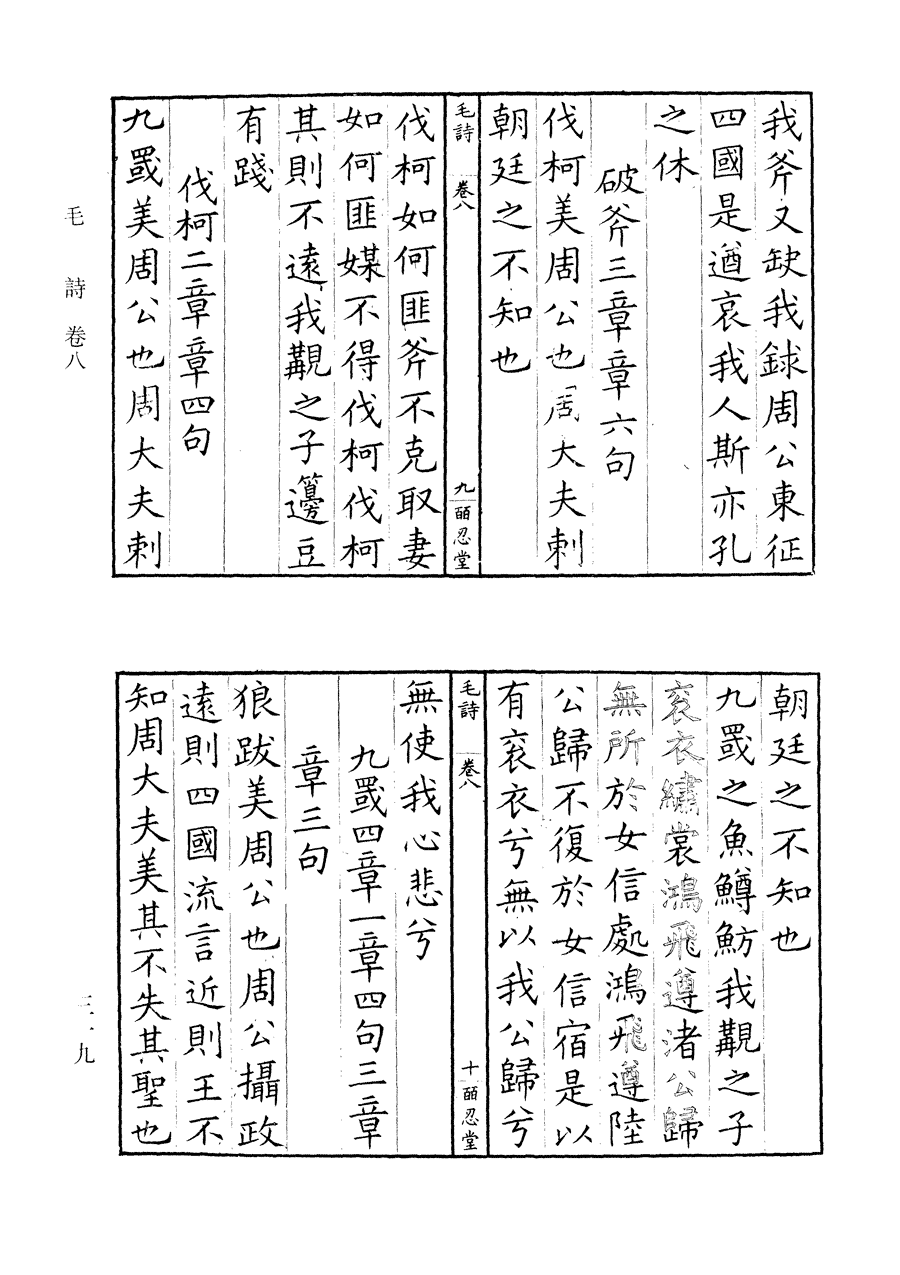 我斧又缺我銶周公東征
四國是遒哀我人斯亦孔
之休
破斧三章章六句
伐柯美周公也周大夫刺
朝廷之不知也
毛詩 卷八 九 皕忍堂
伐柯如何匪斧不克取妻
如何匪媒不得伐柯伐柯
其則不遠我覯之子籩豆
有踐
伐柯二章章四句
九罭美周公也周大夫刺
朝廷之不知也
九罭之魚鱒魴我覯之子
袞衣繡裳鴻飛遵渚公歸
無所於女信處鴻飛遵陸
公歸不復於女信宿是以
有袞衣兮無以我公歸兮
毛詩 卷八 十 皕忍堂
無使我心悲兮
九罭四章一章四句三章
章三句
狼跋美周公也周公攝政
遠則四國流言近則王不
知周大夫美其不失其聖也
毛詩 卷八
三一九